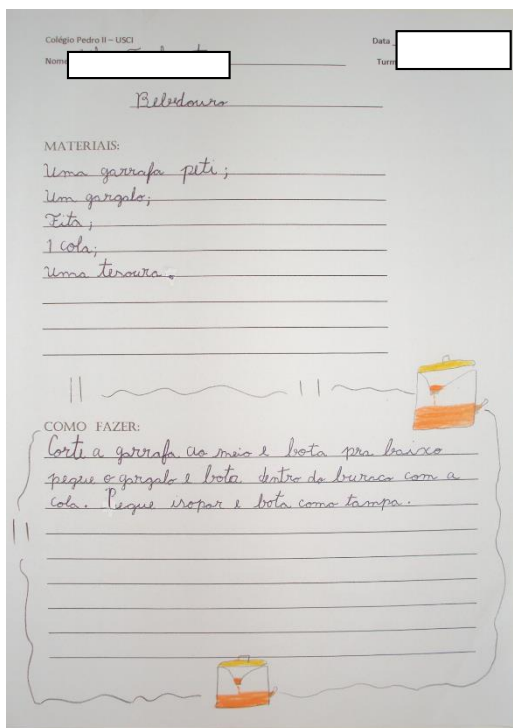 Colégio Pedro II – USCI
Data
Nome
Turm
Bebedouro
MATERIAIS:
Uma garrafa peti;
Um gargalo;
Fita;
1 cola;
Uma tesoura.
COMO FAZER:
Corte a garrafa ao meio e bota pra baixo
pegue o gargalo e bota dentro do buraco com a
cola. Pegue isopor e bota como tampa.